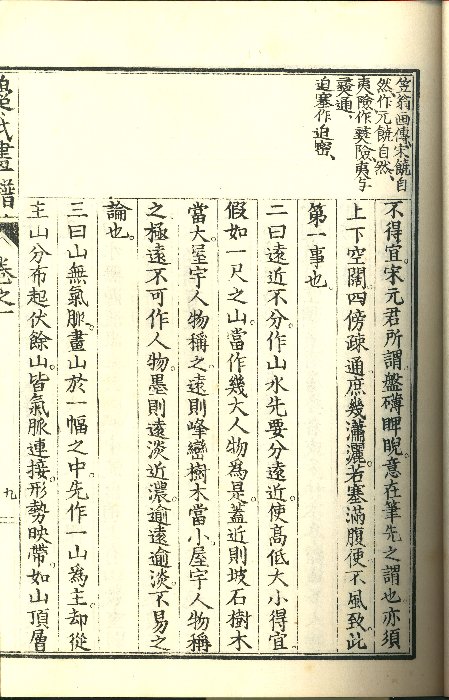 笠翁画傳、宋饒自
然作元饒自然、
夷險作𡾟險、夷与
㠜通、
迫塞作迫密、
不得宜宋元君所謂盤礴睥睨意在筆先之謂也亦須
上下空闊四傍疎通庶幾瀟灑若塞滿腹便不風致此
第一事也
二曰遠近不分作山水先要分遠近使高低大小得宜
假如一尺之山當作幾大人物為是蓋近則坡石樹木
當大屋宇人物稱之遠則峰巒樹木當小屋宇人物稱
之極遠不可作人物墨則遠淡近濃逾遠逾淡不易之
論也
三曰山無氣脈畫山於一幅之中先作一山為主却從
主山分布起伏餘山皆氣脈連接形勢映帶如山頂層
畫譜
卷之一
九